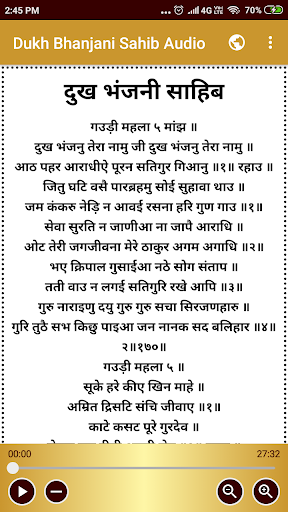 2:45 PM 4G VOLTE 70%
Dukh Bhanjani Sahib Audio
दुख भंजनी साहिब
गउड़ी महला ५ मांझ ॥
दुख भंजनु तेरा नामु जी दुख भंजनु तेरा नामु ॥
आठ पहर आराधीऐ पूरन सतिगुर गिआनु ॥१॥ रहाउ ॥
जितु घटि वसै पारब्रहमु सोई सुहावा थाउ ॥
जम कंकरु नेड़ि न आवई रसना हरि गुण गाउ ॥१॥
सेवा सुरति न जाणीआ ना जापै आराधि ॥
ओट तेरी जगजीवना मेरे ठाकुर अगम अगाधि ॥२॥
भए क्रिपाल गुसाईआ नठे सोग संताप ॥
तती वाउ न लगई सतिगुरि रखे आपि ॥३॥
गुरु नाराइणु दयु गुरु गुरु सचा सिरजणहारु ॥
गुरि तुठै सभ किछु पाइआ जन नानक सद बलिहार ॥४॥
२॥१७०॥
गउड़ी महला ५ ॥
सूके हरे कीए खिन माहे ॥
अम्रित द्रिसटि संचि जीवाए ॥१॥
काटे कसट पूरे गुरदेव ॥
00:00 27:32